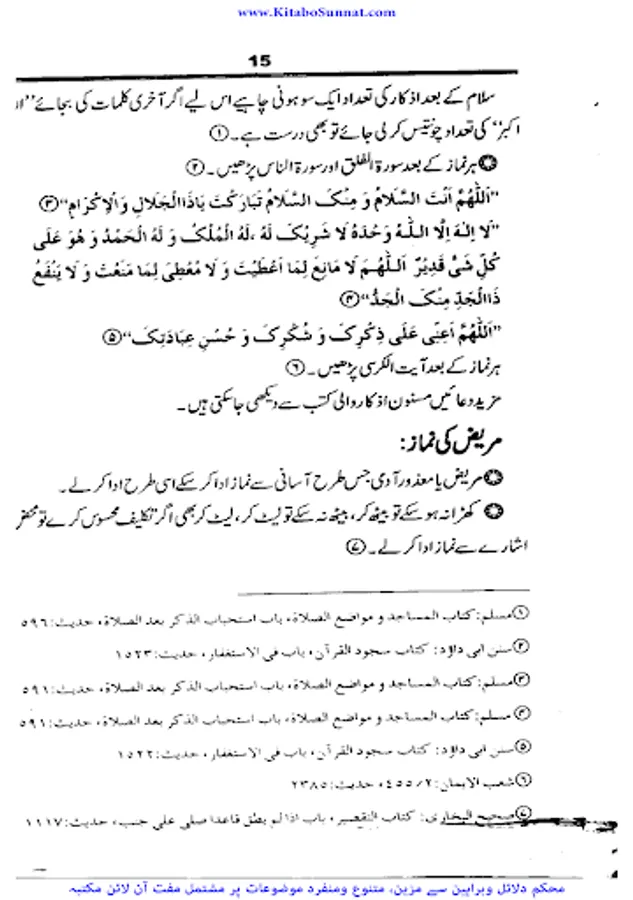 www.KitaboSunnat.com
15
سلام کے بعد اذکار کی تعداد ایک سو ہونی چاہیے اس لیے اگر آخری کلمات کی بجائے "ا
اکبر" کی تعداد چونتیس کر لی جائے تو بھی درست ہے۔ ①
✪ ہر نماز کے بعد سورۃ الفلق اور سورۃ الناس پڑھیں۔ ②
"اَللّٰهُمَّ اَنْتَ السَّلَامُ وَ مِنْکَ السَّلَامُ تَبَارَکْتَ يَاذَاالْجَلَالِ وَالْاِکْرَامِ" ③
"لَا اِلٰهَ اِلَّا اللّٰهُ وَحْدَهُ لَا شَرِيْکَ لَهُ ،لَهُ الْمُلْکُ وَ لَهُ الْحَمْدُ وَ هُوَ عَلٰی
کُلِّ شَیْ قَدِيْرٌ اَللّٰهُمَّ لَا مَانِعَ لِمَا اَعْطَيْتَ وَ لَا مُعْطِیَ لِمَا مَنَعْتَ وَ لَا يَنْفَعُ
ذَاالْجَدِّ مِنْکَ الْجَدُّ" ④
"اَللّٰهُمَّ اَعِنِّی عَلٰی ذِکْرِکَ وَ شُکْرِکَ وَ حُسْنِ عِبَادَتِکَ" ⑤
ہر نماز کے بعد آیت الکرسی پڑھیں۔ ⑥
مزید دعائیں مسنون اذکار والی کتب سے دیکھی جاسکتی ہیں۔
مریض کی نماز:
✪ مریض یا معذور آدمی جس طرح آسانی سے نماز ادا کر سکے اسی طرح ادا کر لے۔
✪ کھڑا نہ ہو سکے تو بیٹھ کر، بیٹھ نہ سکے تو لیٹ کر، لیٹ کر بھی اگر تکلیف محسوس کرے تو
اشارے سے نماز ادا کر لے۔ ⑦
① مسلم: کتاب المساجد و مواضع الصلاة، باب استحباب الذکر بعد الصلاة، حدیث: ۵۹۶
② سنن ابی داؤد: کتاب سجود القرآن، باب فی الاستغفار، حدیث: ۱۵۲۳
③ مسلم: کتاب المساجد و مواضع الصلاة، باب استحباب الذکر بعد الصلاة، حدیث: ۵۹۱
④ مسلم: کتاب المساجد و مواضع الصلاة، باب استحباب الذکر بعد الصلاة، حدیث: ۵۹۱
⑤ سنن ابی داؤد: کتاب سجود القرآن، باب فی الاستغفار، حدیث: ۱۵۲۲
⑥ شعب الایمان: ۴۵۵/۲، حدیث: ۲۳۸۵
⑦ صحیح البخاری: کتاب التقصیر، باب اذا لم یطق قاعدا صلی علی جنب، حدیث: ۱۱۱۷
محکم دلائل وبراہین سے مزین، متنوع ومنفرد موضوعات پر مشتمل مفت آن لائن مکتبہ